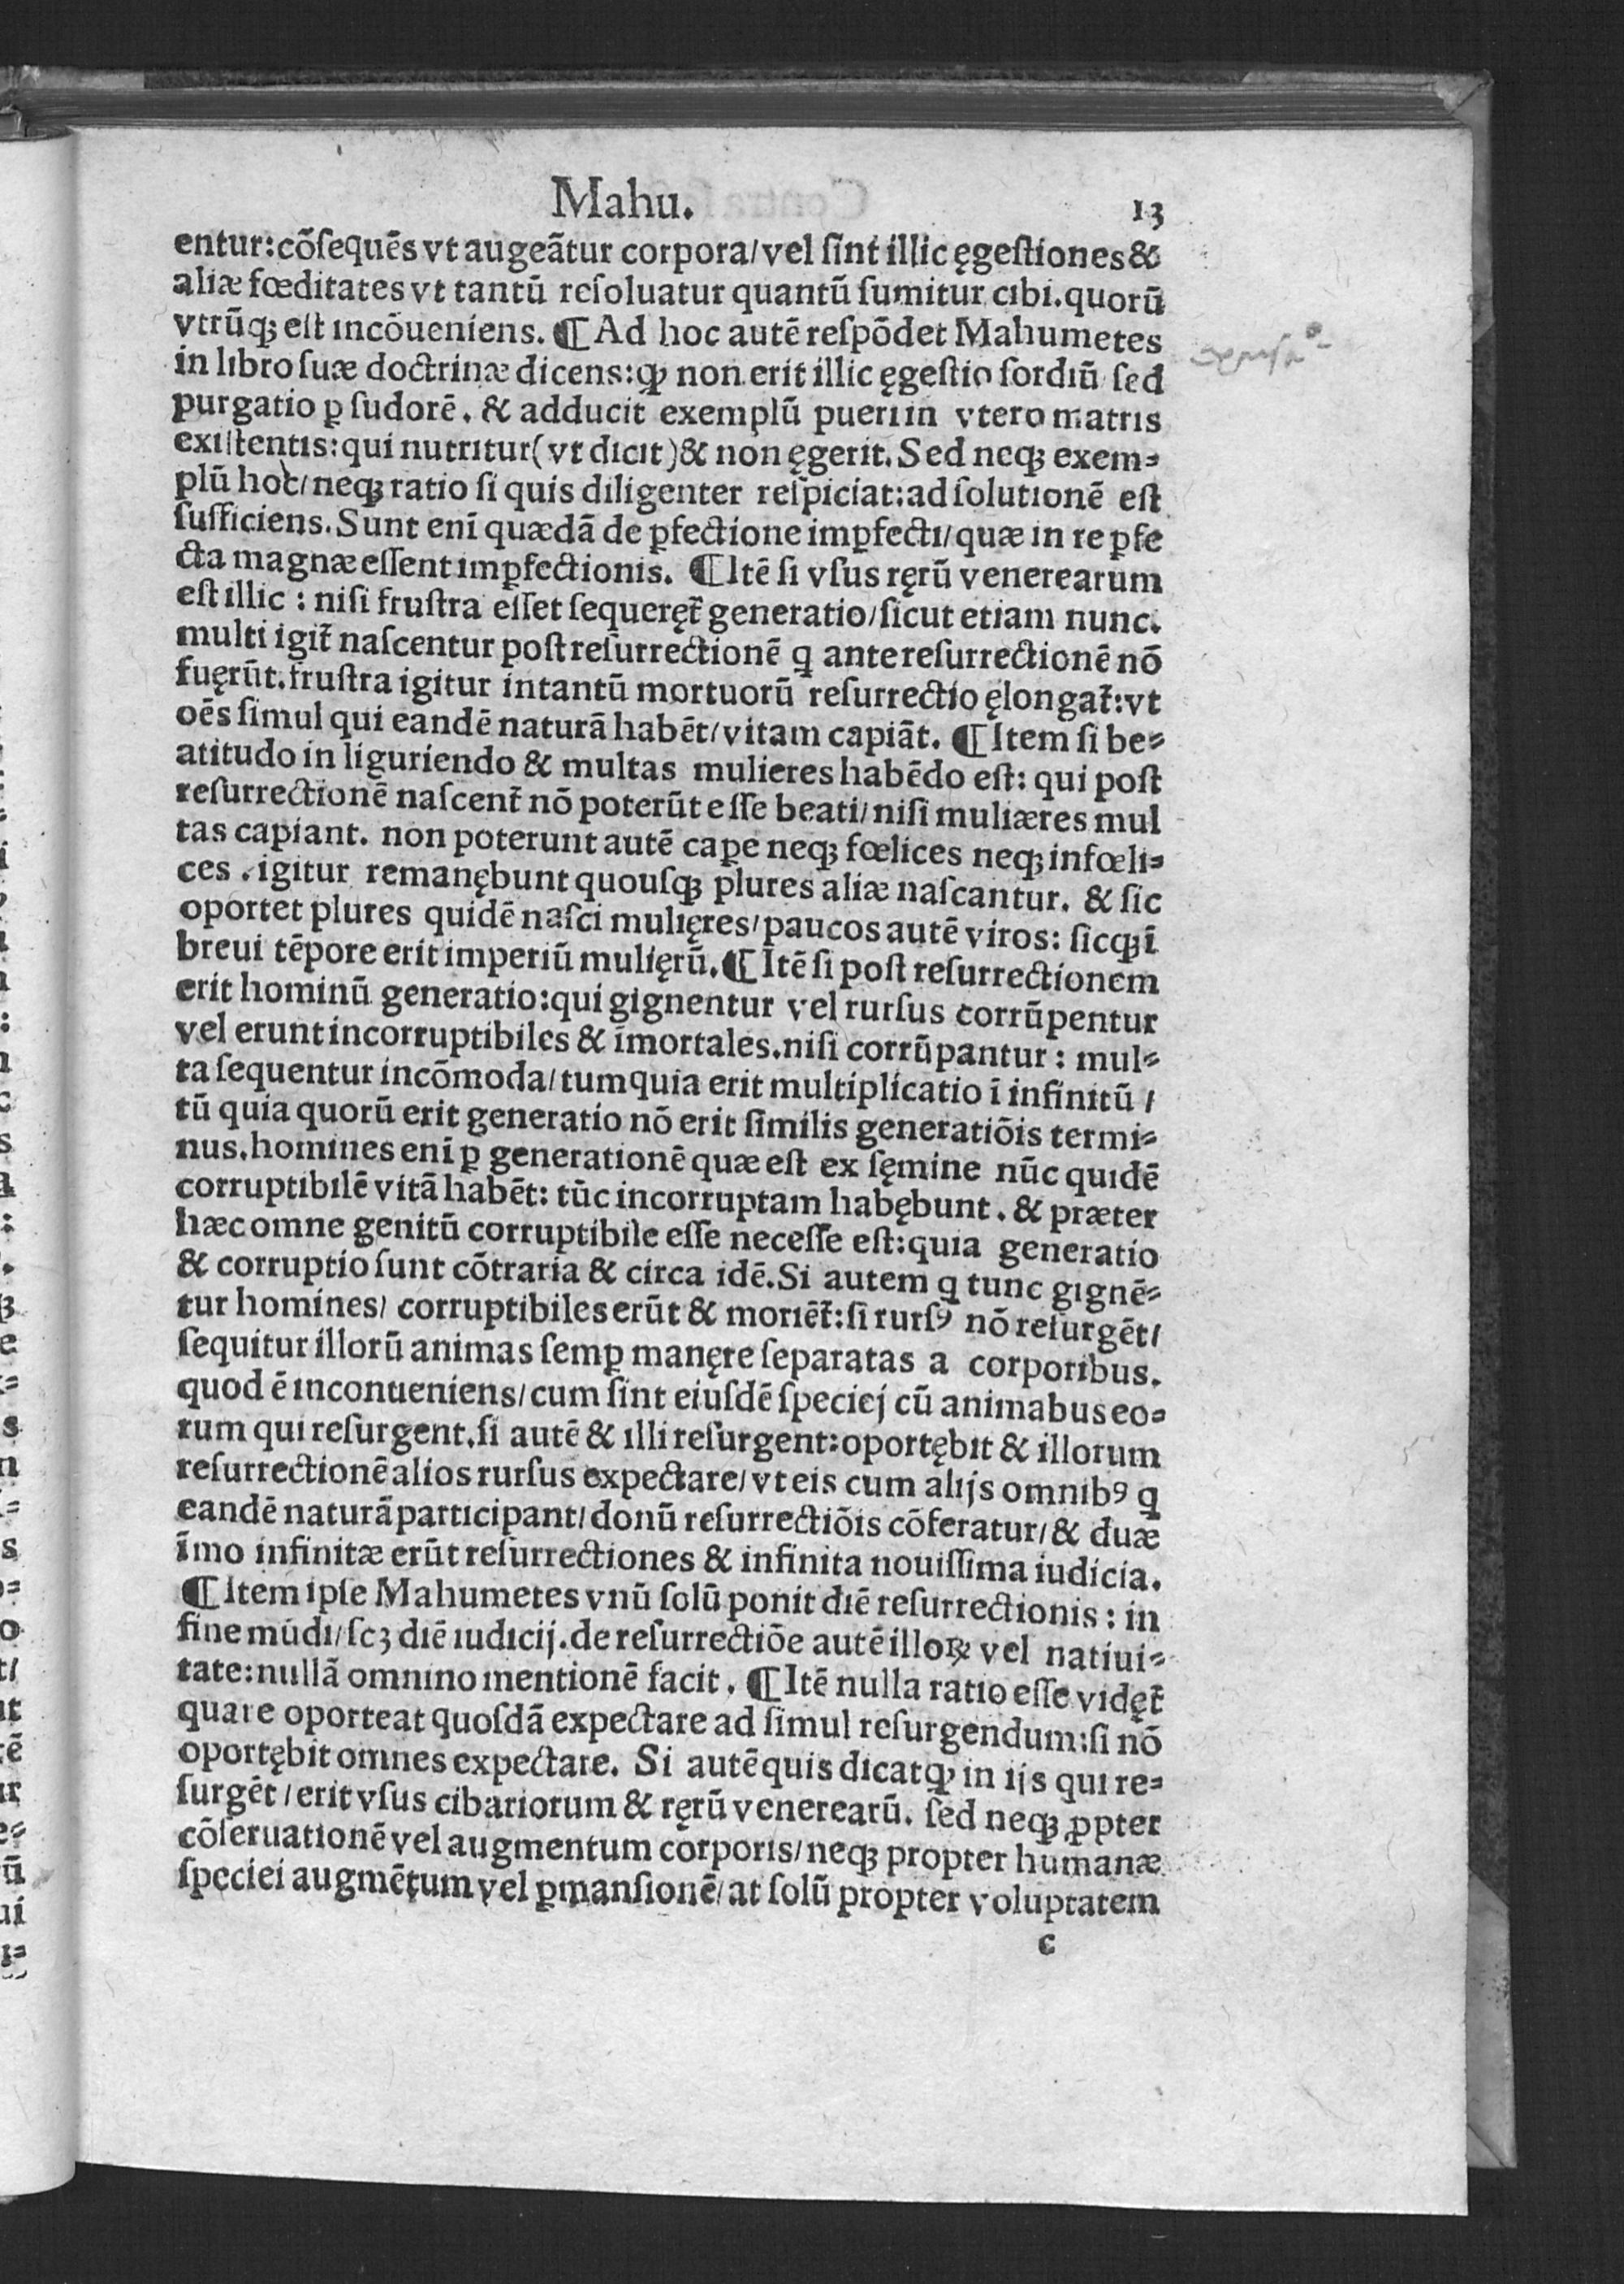 Mahu. 13
entur:cõſequẽs vt augeãtur corpora/vel ſint illic ęgeſtiones &
aliæ fœditates vt tantũ reſoluatur quantũ ſumitur cibi.quorũ
vtrũqꝫ eſt incõueniens. ¶ Ad hoc autẽ reſpõdet Mahumetes
in libro ſuæ doctrinæ dicens:ꝙ non erit illic ęgeſtio ſordiũ ſed
purgatio ꝑ ſudorẽ. & adducit exemplũ pueri in vtero matris
exiſtentis:qui nutritur(vt dicit)& non ęgerit. Sed neqꝫ exem⸗
plũ hoc/neqꝫ ratio ſi quis diligenter reſpiciat:ad ſolutionẽ eſt
ſufficiens. Sunt enĩ quædã de ꝑfectione imꝑfecti/quæ in re ꝑfe
cta magnæ eſſent imꝑfectionis. ¶ Itẽ ſi vſus ręrũ venerearum
eſt illic : niſi fruſtra eſſet ſequeręt̃ generatio/ſicut etiam nunc.
multi igit̃ naſcentur poſt reſurrectionẽ q̃ ante reſurrectionẽ nõ
fuęrũt.fruſtra igitur intantũ mortuorũ reſurrectio ęlongat̃:vt
oẽs ſimul qui eandẽ naturã habẽt/vitam capiãt. ¶ Item ſi be⸗
atitudo in liguriendo & multas mulieres habẽdo eſt: qui poſt
reſurrectionẽ naſcent̃ nõ poterũt eſſe beati/niſi muliæres mul
tas capiant. non poterunt autẽ caꝑe neqꝫ fœlices neqꝫ infœli⸗
ces . igitur remanębunt quouſqꝫ plures aliæ naſcantur. & ſic
oportet plures quidẽ naſci mulięres/paucos autẽ viros: ſicqꝫ ĩ
breui tẽpore erit imperiũ mulięrũ. ¶ Itẽ ſi poſt reſurrectionem
erit hominũ generatio:qui gignentur vel rurſus corrũpentur
vel erunt incorruptibiles & ĩmortales.niſi corrũpantur : mul⸗
ta ſequentur incõmoda/tum quia erit multiplicatio ĩ infinitũ /
tũ quia quorũ erit generatio nõ erit ſimilis generatiõis termi⸗
nus.homines enĩ ꝑ generationẽ quæ eſt ex ſęmine nũc quidẽ
corruptibilẽ vitã habẽt: tũc incorruptam habębunt . & præter
hæc omne genitũ corruptibile eſſe neceſſe eſt:quia generatio
& corruptio ſunt cõtraria & circa idẽ. Si autem q̃ tunc gignẽ⸗
tur homines/ corruptibiles erũt & moriẽt̃: ſi rurſꝰ nõ reſurgẽt/
ſequitur illorũ animas ſemꝑ manęre ſeparatas a corporibus.
quod ẽ inconueniens/cum ſint eiuſdẽ ſpeciej cũ animabus eo⸗
rum qui reſurgent.ſi autẽ & illi reſurgent:oportębit & illorum
reſurrectionẽ alios rurſus expectare/vt eis cum alijs omnibꝰ q̃
eandẽ naturã participant/donũ reſurrectiõis cõferatur/& duæ
ĩmo infinitæ erũt reſurrectiones & infinita nouiſſima iudicia.
¶ Item ipſe Mahumetes vnũ ſolũ ponit diẽ reſurrectionis : in
fine mũdi/ſcꝫ diẽ iudicij.de reſurrectiõe autẽ illoꝝ vel natiui⸗
tate:nullã omnino mentionẽ facit. ¶ Itẽ nulla ratio eſſe vidęt̃
quare oporteat quoſdã expectare ad ſimul reſurgendum:ſi nõ
oportębit omnes expectare. Si autẽ quis dicat ꝙ in ijs qui re⸗
ſurgẽt/erit vſus cibariorum & ręrũ venerearũ. ſed neqꝫ ꝓpter
cõſeruationẽ vel augmentum corporis/neqꝫ propter humanæ
ſpeciei augmẽtum vel ꝑmanſionẽ/at ſolũ propter voluptatem
c